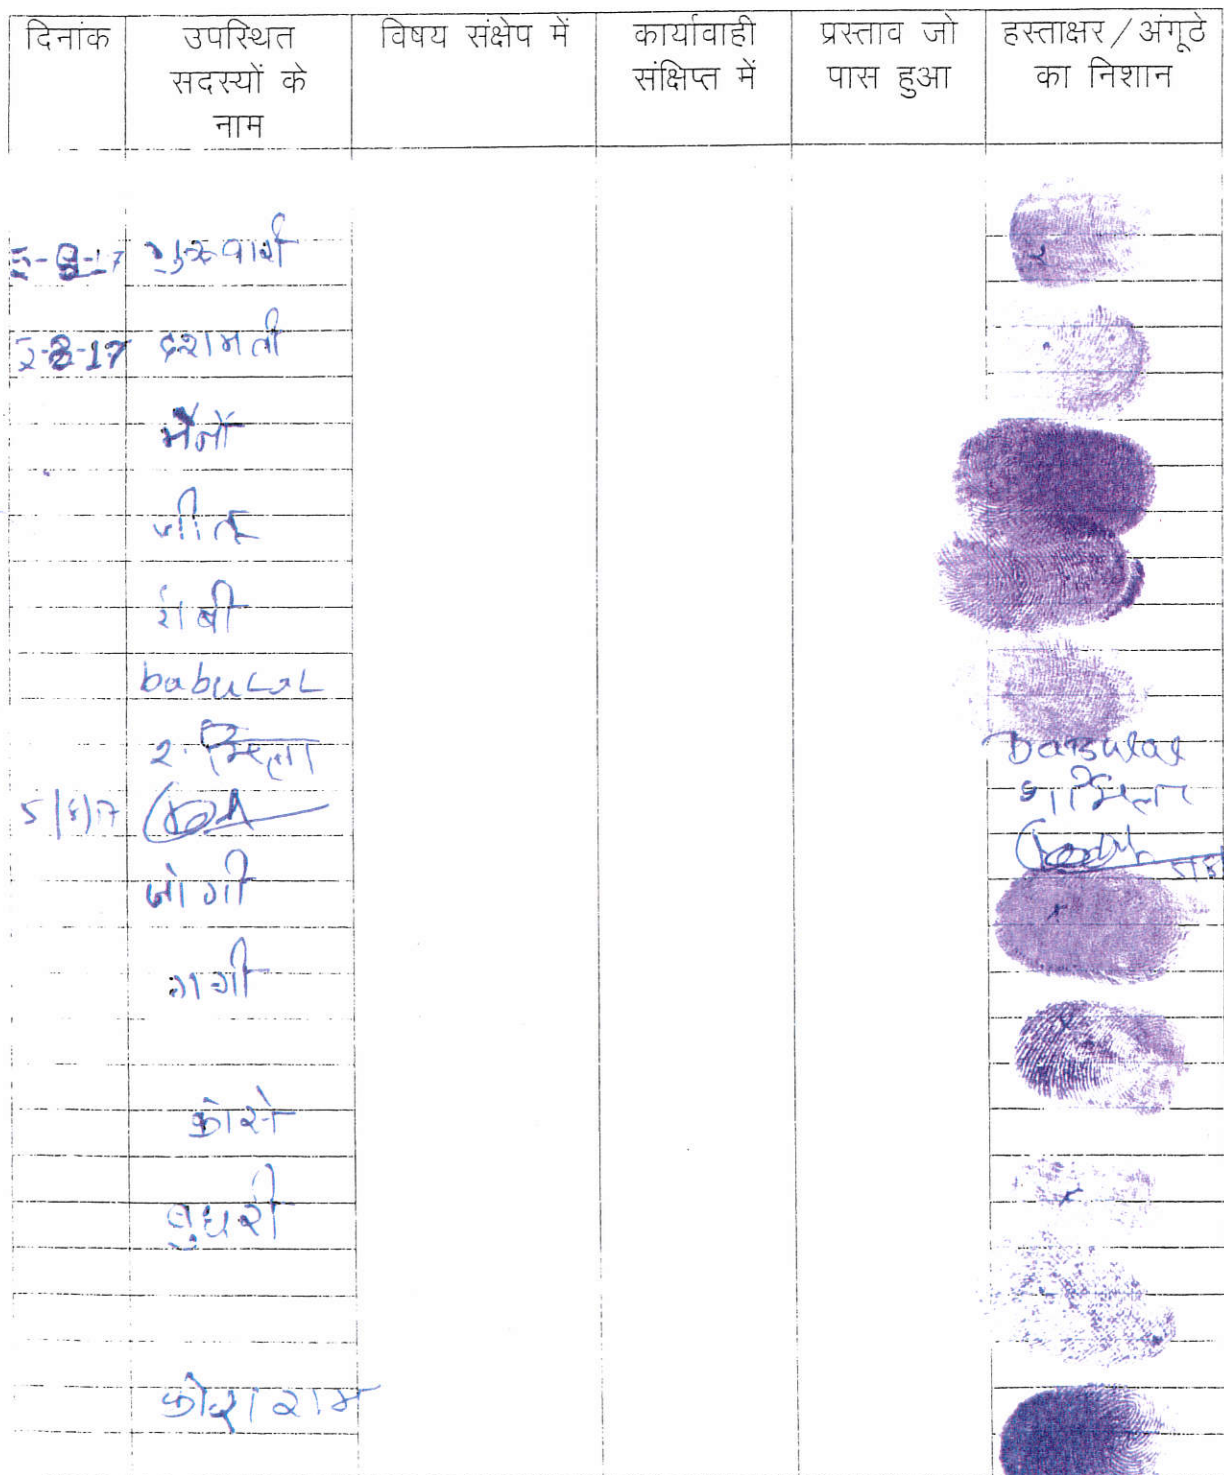 दिनांक उपस्थित सदस्यों के नाम विषय संक्षेप में कार्यावाही संक्षिप्त में प्रस्ताव जो पास हुआ हस्ताक्षर / अंगूठे का निशान
5-8-17 गुरुवारी
5-8-17 दशमती
मैनों
जीतू
babuLaL
babulal
5/8/17
जोगी
गगी
कोसे
बुधरी